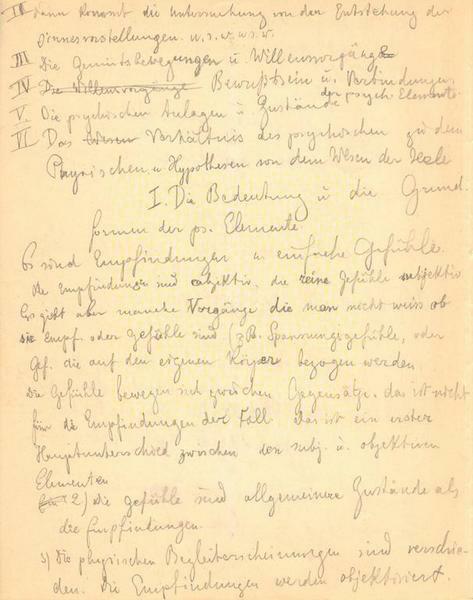 II Dann kommt die Untersuchung von den Entstehung der
Sinnesvorstellungen. u. s. w. u. s. w.
III Die Gemütsbewegungen u Willensvorgänge
IV Die Willensvorgänge Bewußtsein u. Verbindungen
der psych. Elemente.
V. Die psychischen Anlagen u. Zustände
VI Das Wesen Verhältnis des psychischen zu dem
Physischen u. Hypothesen von dem Wesen der Seele
I. Die Bedeutung u die Grund-
formen der ps. Elemente.
Es sind Empfindungen u. einfache Gefühle.
Die Empfindungen sind objektiv, die reine Gefühle subjektiv
Es giebt aber manche Vorgänge die man nicht weiss ob
sie Empf. oder Gefühle sind (z B. Spannungsgefühle, oder
Gef. die auf den eigenen Körper bezogen werden.
Die Gefühle bewegen sich zwischen Gegensätze. das ist nicht
für die Empfindungen der Fall das ist ein erster
Hauptunterschied zwischen den subj. u. objektiven
Elementen
2) Die Gefühle sind allgemeinere Zustände als
die Empfindungen.
3) Die physischen Begleiterscheinungen sind verschie-
den. Die Empfindungen werden objektiviert.